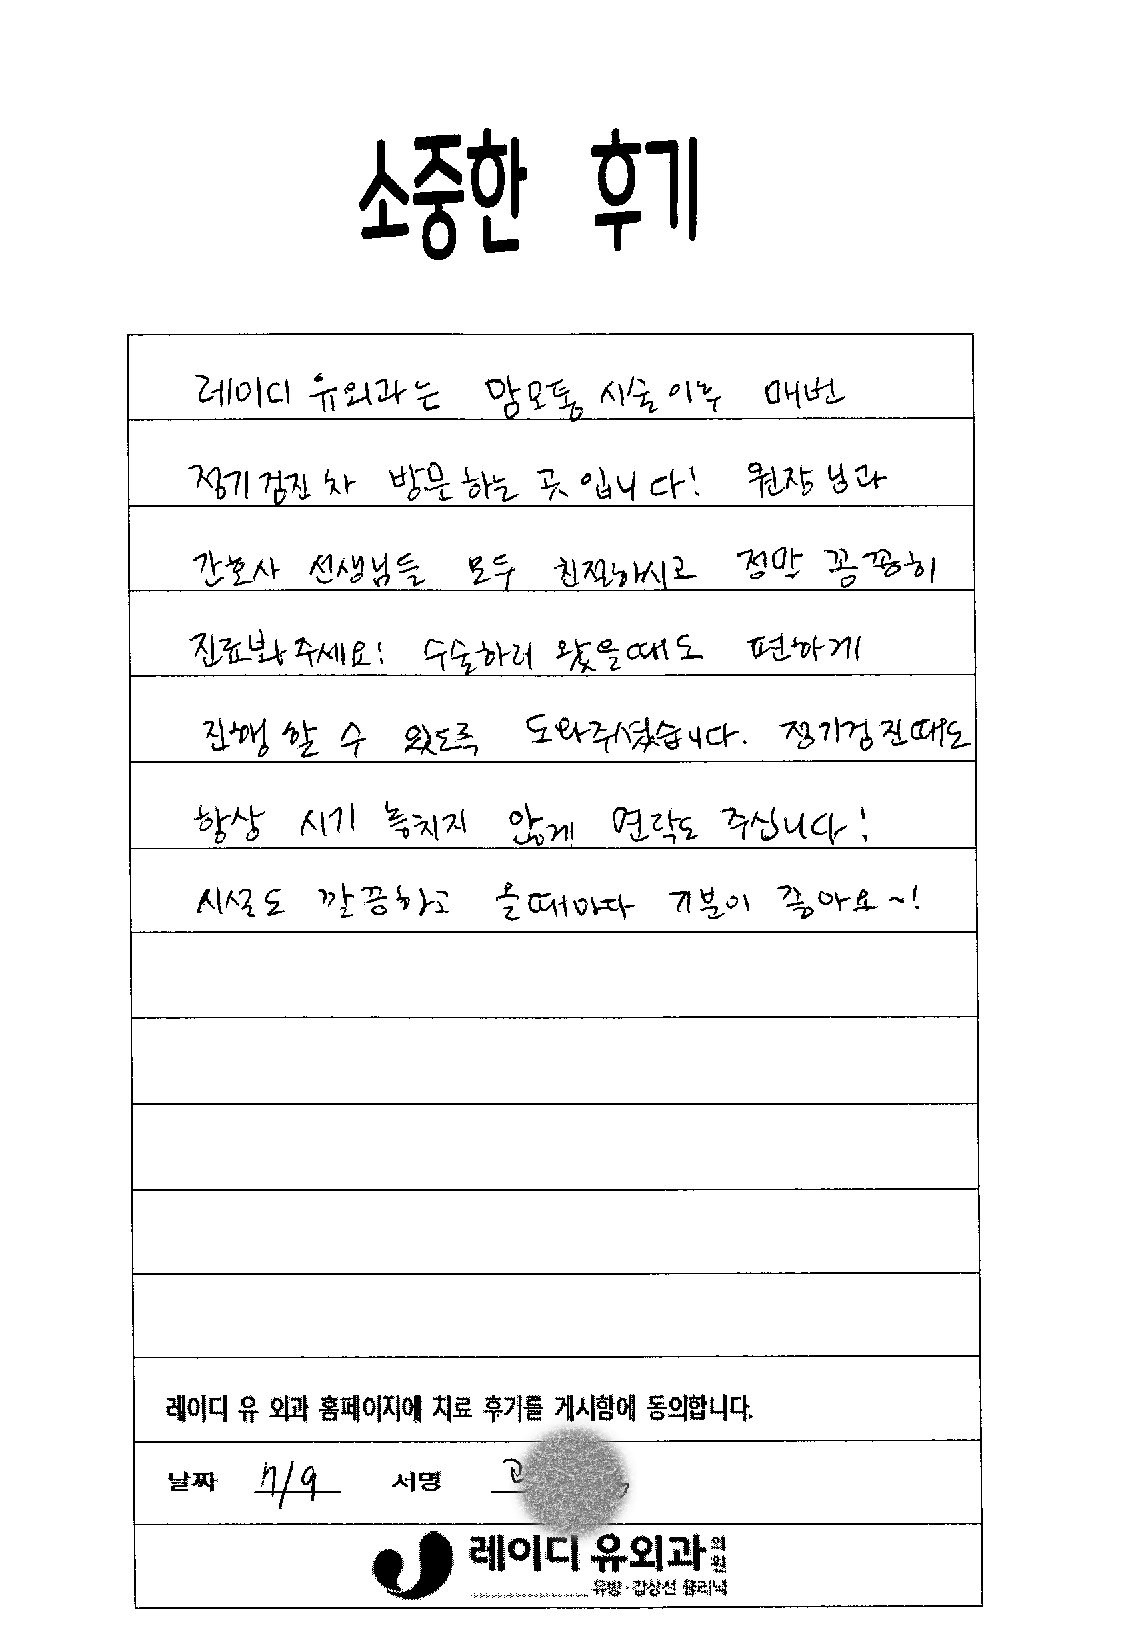 소중한 후기
레이디 유외과는 맘모톰 시술이후 매번
정기검진차 방문하는 곳입니다! 원장님과
간호사 선생님들 모두 친절하시고 정말 꼼꼼히
진료봐주세요! 수술하러 왔을때도 편하게
진행할 수 있도록 도와주셨습니다. 정기검진때도
항상 시기 놓치지 않게 연락도 주십니다!
시설도 깔끔하고 올때마다 기분이 좋아요~!
레이디 유 외과 홈페이지에 치료 후기를 게시함에 동의합니다.
날짜 7/9 서명
레이디 유외과의원
유방·갑상선 클리닉